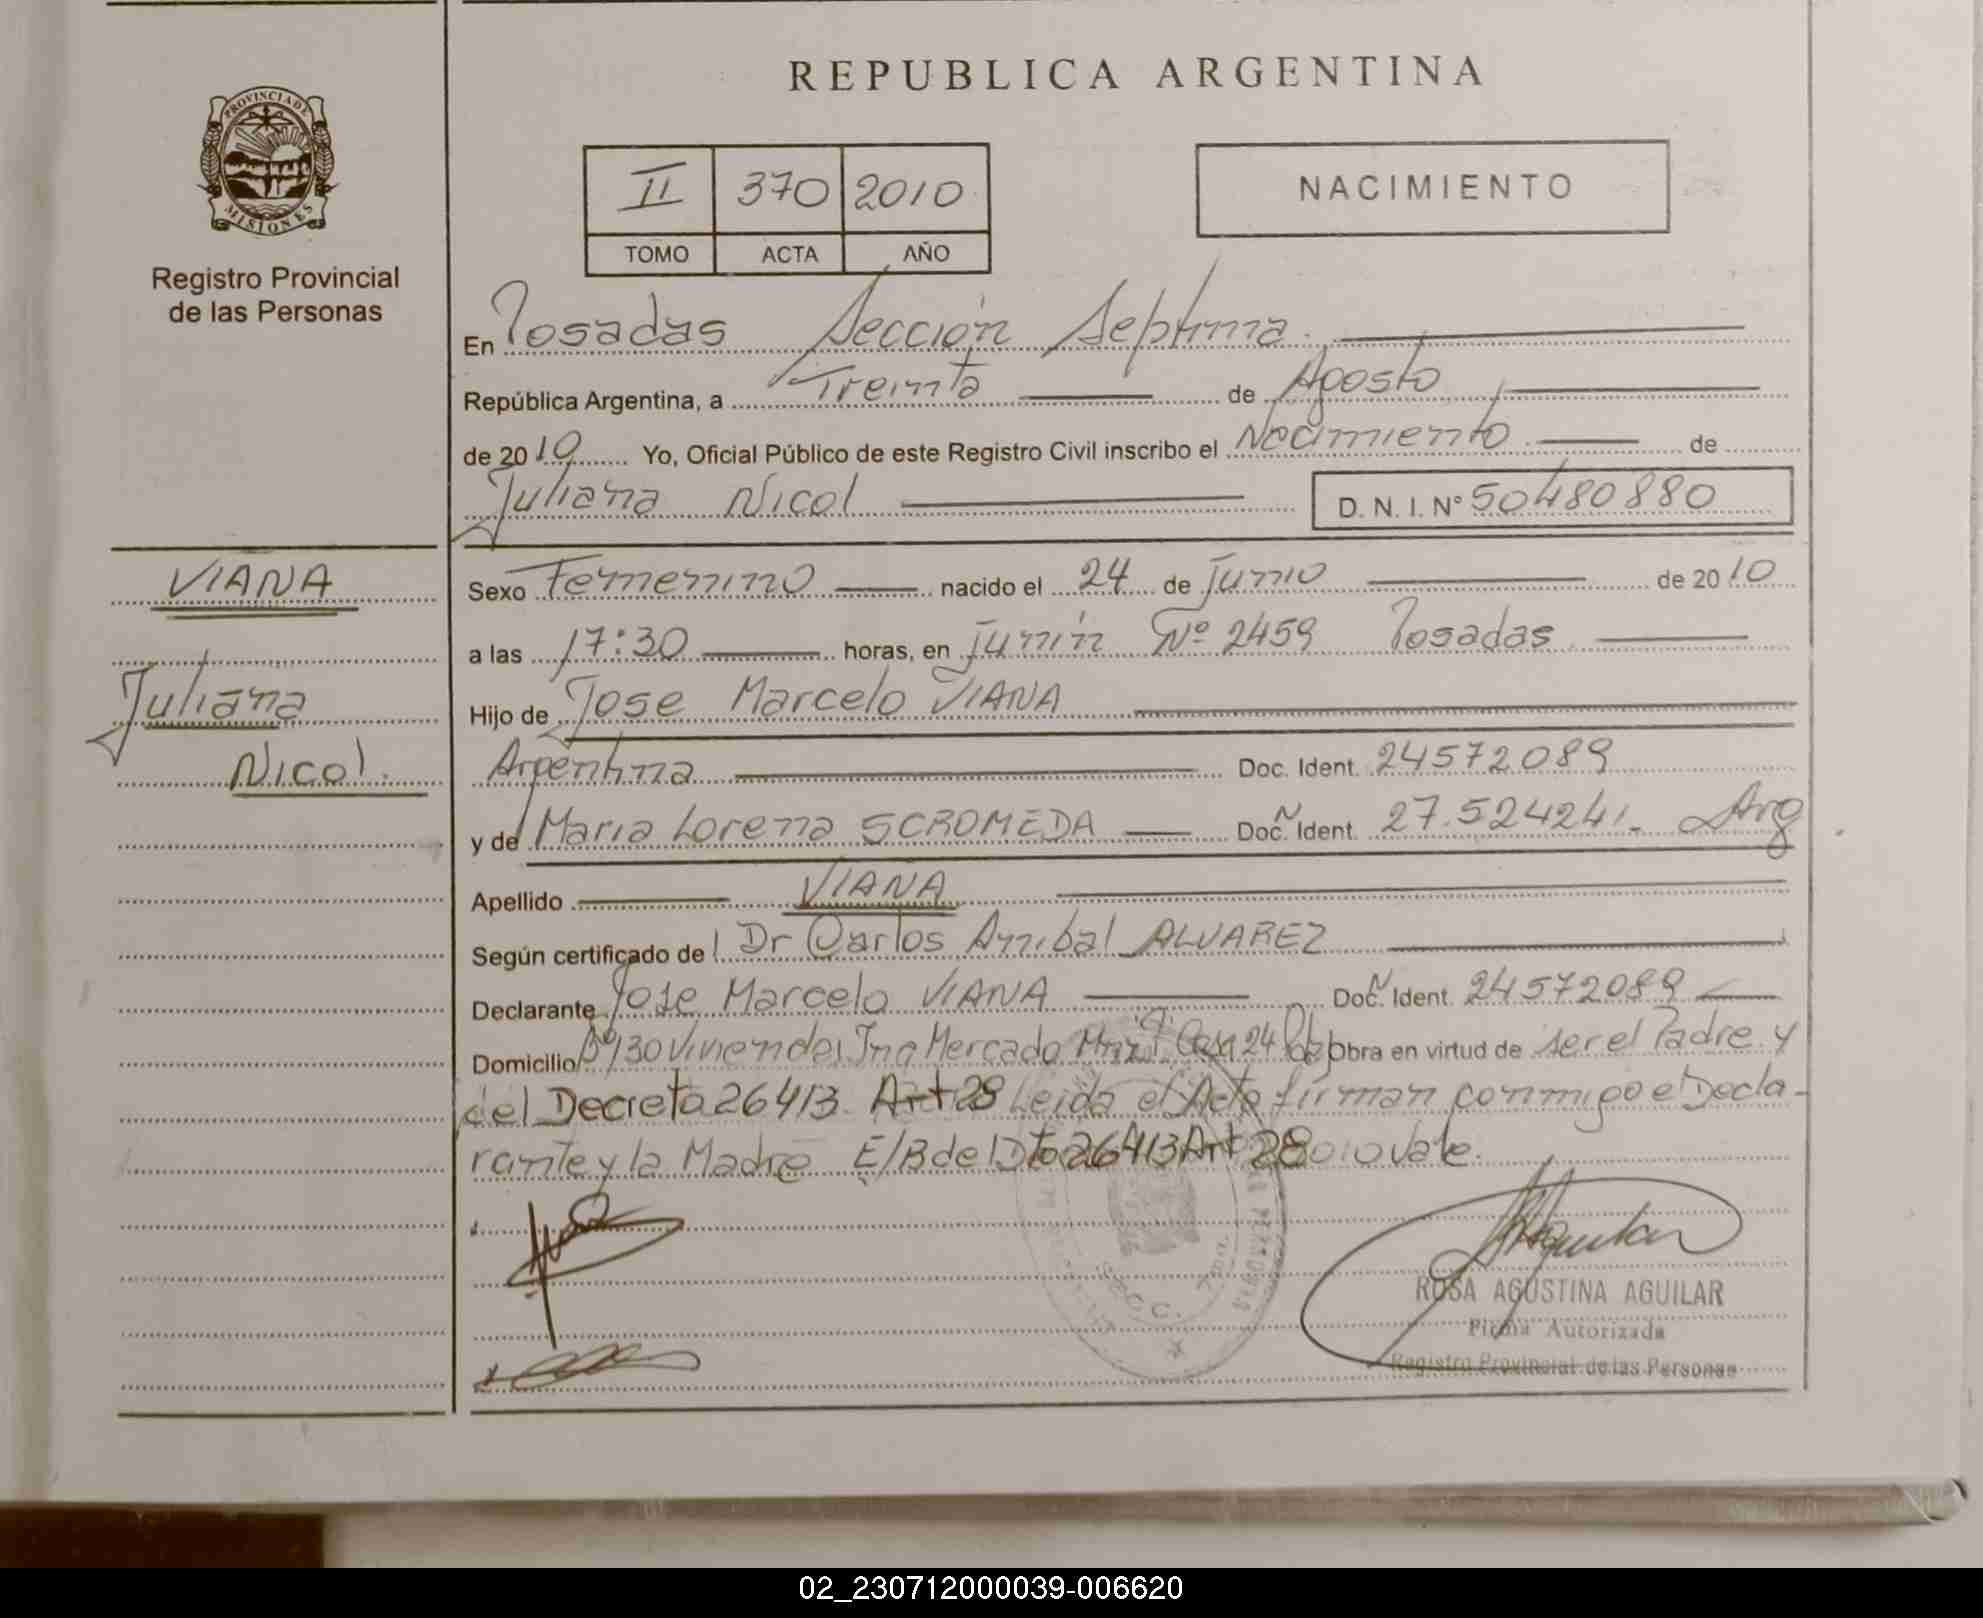 REPUBLICA ARGENTINA
PROVINCIA DE
MISIONES
Registro Provincial
de las Personas
II 370 2010
TOMO ACTA AÑO
NACIMIENTO
En Posadas Sección Septima
República Argentina, a Treinta de Agosto
de 2010 Yo, Oficial Público de este Registro Civil inscribo el Nacimiento de
Juliana Nicol D. N. I. Nº 50480880
VIANA
Juliana
Nicol.
Sexo Femenino nacido el 24 de Junio de 2010
a las 17:30 horas, en Junín Nº 2459 Posadas
Hijo de Jose Marcelo VIANA
Argentina Doc. Ident. 24572089
y de Maria Lorena SCROMEDA Doc. Ident. 27.524241 Arg
Apellido VIANA
Según certificado del Dr Carlos Anibal ALVAREZ
Declarante Jose Marcelo VIANA Doc. Ident. 24572089
Domicilio Bº 130 Viviendas Ing Mercado Casa 24 Obra en virtud de ser el Padre y
del Decreto 26413 Art 28 Leida el Acta firman conmigo el Decla-
rante y la Madre E/B del Dto 26413 Art 28 Vale.
SECC. 7ma.
ROSA AGUSTINA AGUILAR
Firma Autorizada
Registro Provincial de las Personas
02_230712000039-006620